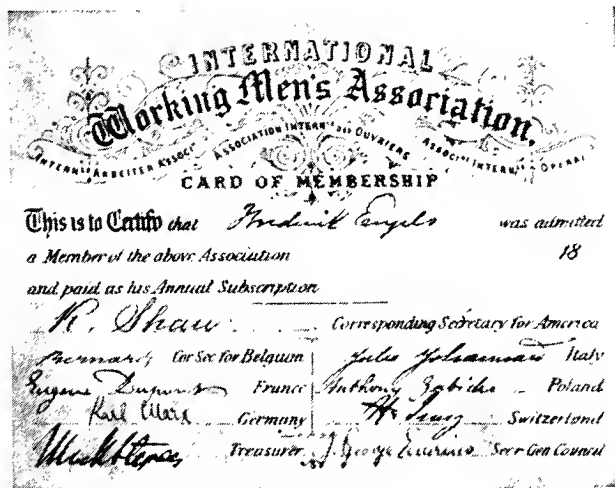 INTERNATIONAL
Working Men's Association.
INTERN. ARBEITER ASSOC. ASSOCIATION INTERN. DES OUVRIERS ASSOC. INTERN. OPERAI
CARD OF MEMBERSHIP
This is to Certify that Frederick Engels was admitted
a Member of the above Association 18
and paid as his Annual Subscription
R. Shaw Corresponding Secretary for America
Bernard Cor Sec for Belgium Italy
Eugene Dupont France Anthony Zabicki Poland
Karl Marx Germany H. Jung Switzerland
Treasurer J. George Eccarius Secr Gen Council